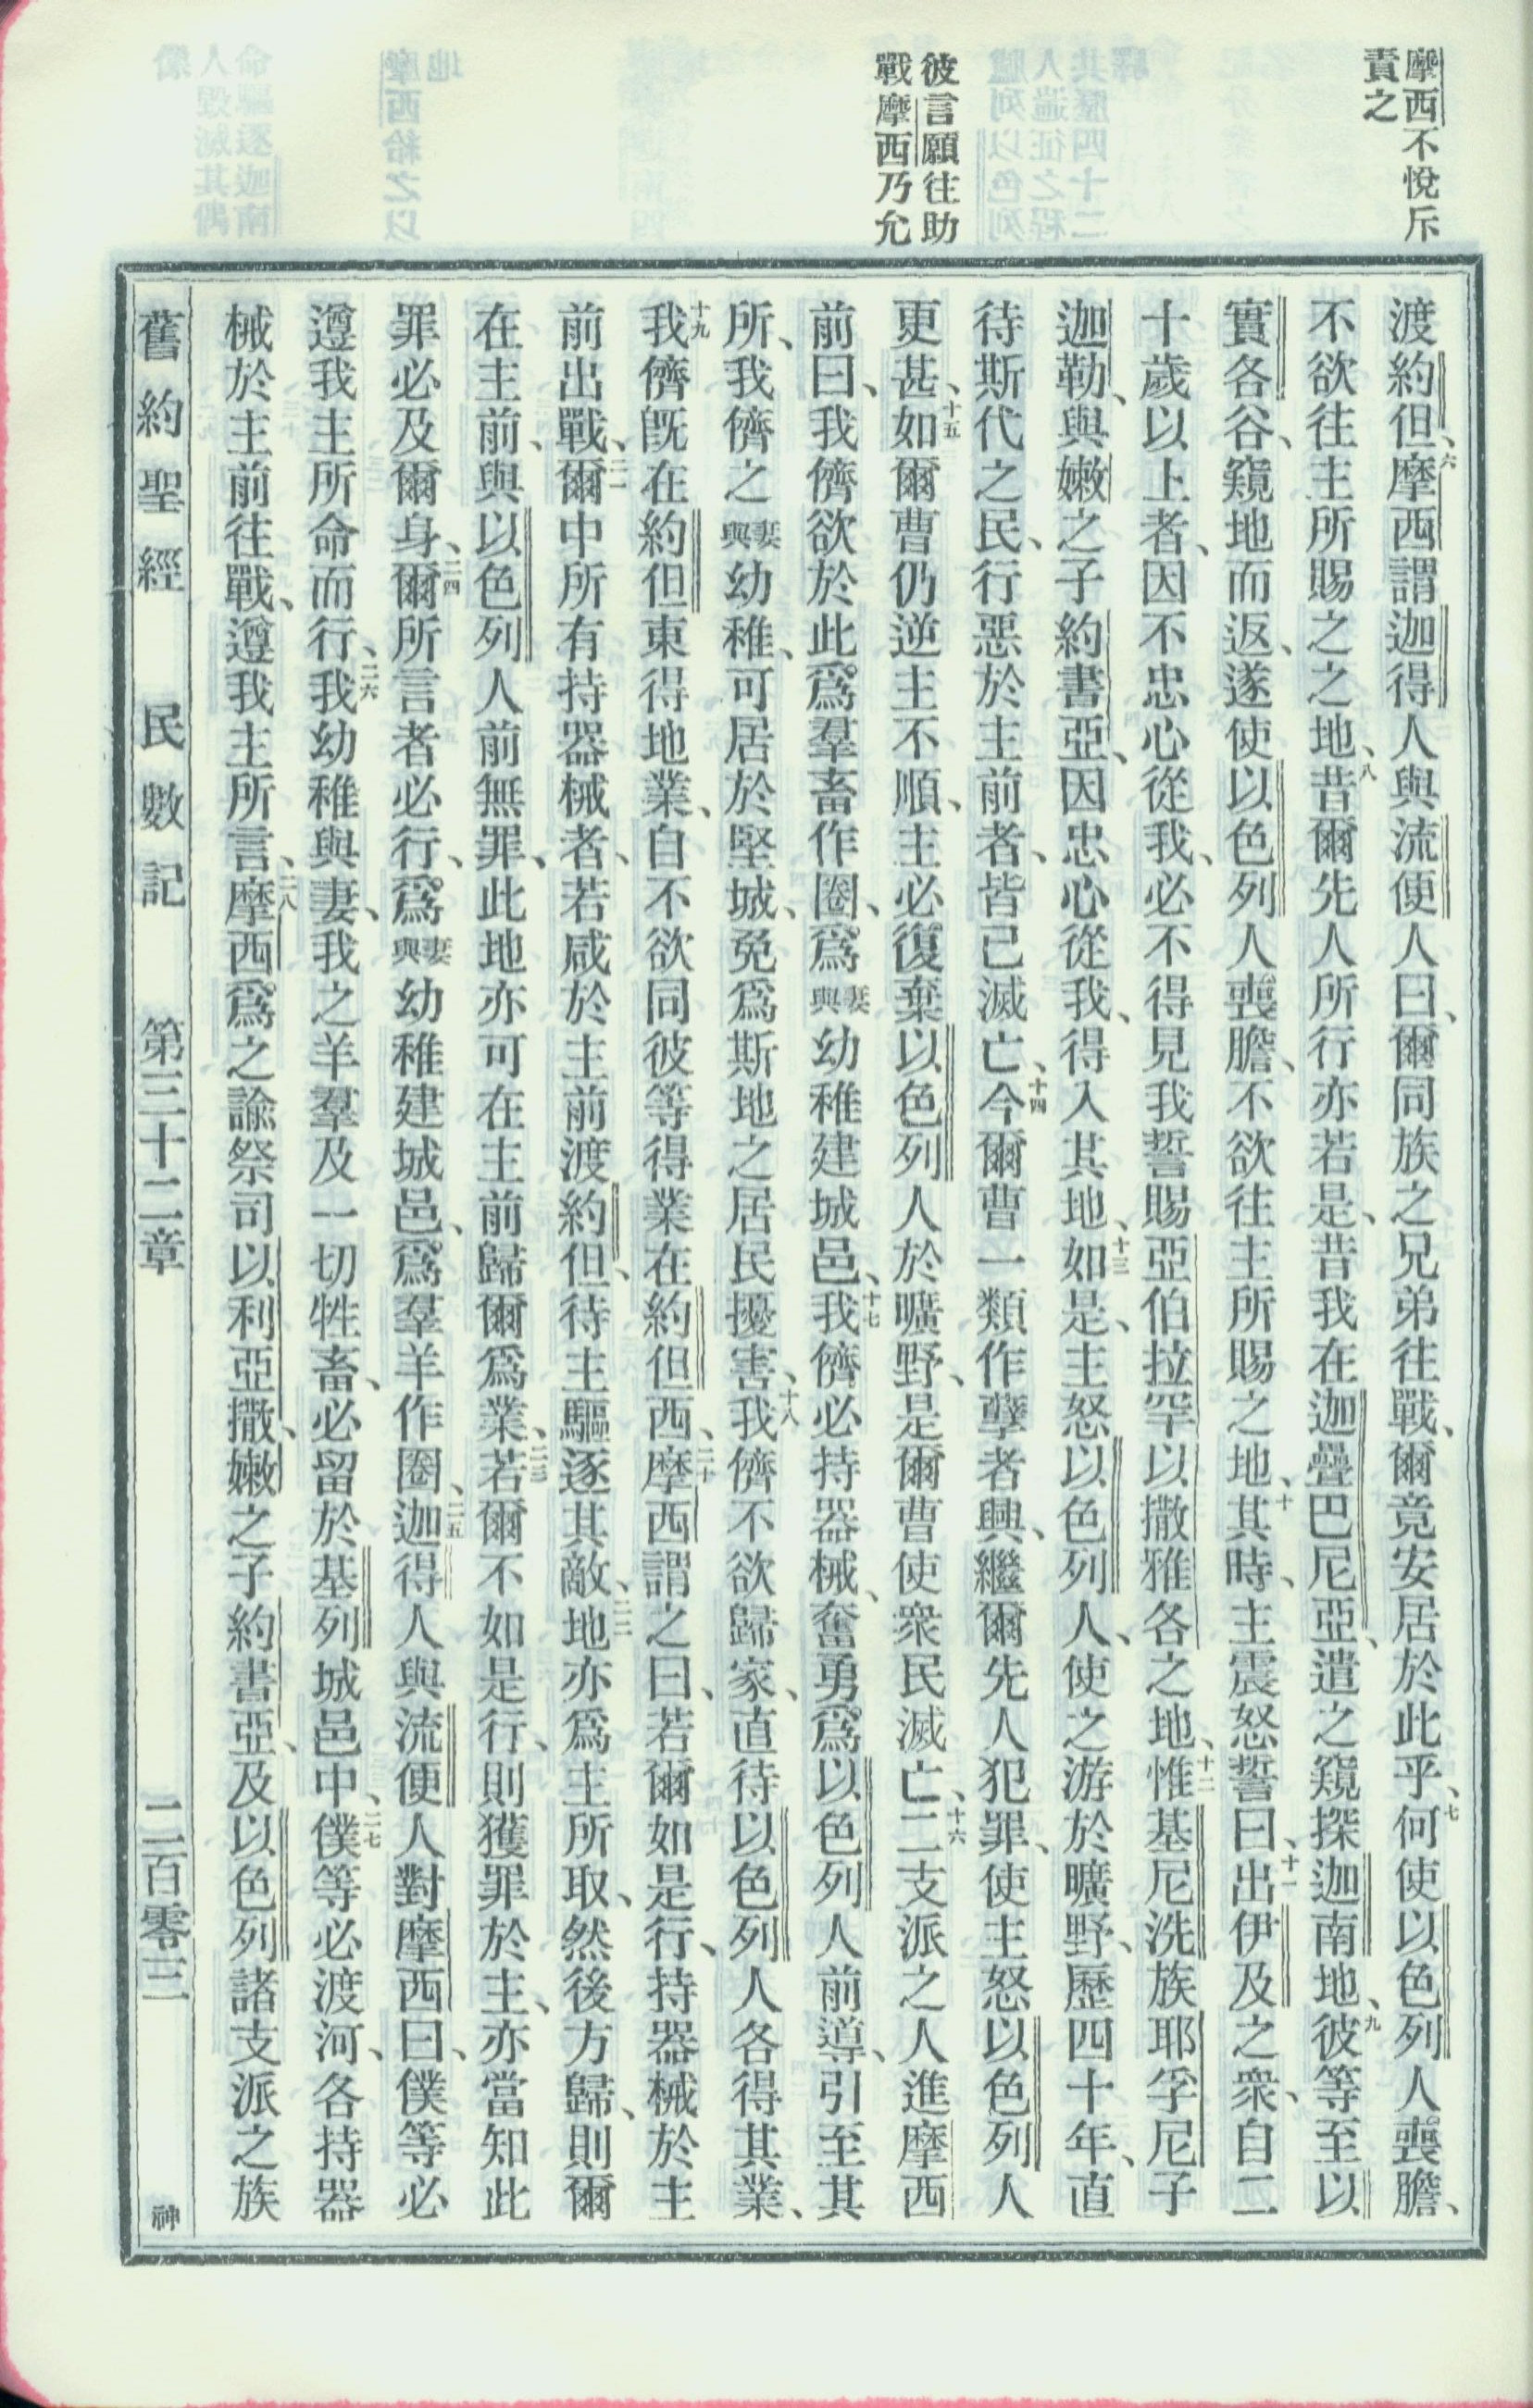 摩西不悅斥
責之
彼言願往助
戰摩西乃允
渡約但、六摩西謂迦得人與流便人曰、爾同族之兄弟往戰、爾竟安居於此乎、七何使以色列人喪膽、
不欲往主所賜之之地、八昔爾先人所行亦若是、昔我在迦疊巴尼亞、遣之窺探迦南地、九彼等至以
實各谷、窺地而返、遂使以色列人喪膽、不欲往主所賜之地、十其時、主震怒誓曰、十一出伊及之衆、自二
十歲以上者、因不忠心從我、必不得見我誓賜亞伯拉罕以撒雅各之地、十二惟基尼洗族耶孚尼子
迦勒、與嫩之子約書亞、因忠心從我、得入其地、十三如是、主怒以色列人、使之游於曠野、歷四十年、直
待斯代之民、行惡於主前者、皆已滅亡、十四今爾曹一類作孽者興、繼爾先人犯罪、使主怒以色列人
更甚、十五如爾曹仍逆主不順、主必復棄以色列人於曠野、是爾曹使衆民滅亡、十六二支派之人進摩西
前曰、我儕欲於此爲羣畜作圈、爲妻與幼稚建城邑、十七我儕必持器械、奮勇爲以色列人前導、引至其
所、我儕之妻與幼稚、可居於堅城、免爲斯地之居民擾害、十八我儕不欲歸家、直待以色列人各得其業、
十九我儕旣在約但東得地業、自不欲同彼等得業在約但西、二十摩西謂之曰、若爾如是行、持器械於主
前出戰、二一爾中所有持器械者、若咸於主前渡約但、待主驅逐其敵、二二地亦爲主所取、然後方歸、則爾
在主前、與以色列人前無罪、此地亦可在主前歸爾爲業、二三若爾不如是行、則獲罪於主、亦當知此
罪必及爾身、二四爾所言者必行、爲妻與幼稚建城邑、爲羣羊作圈、二五迦得人與流便人對摩西曰、僕等必
遵我主所命而行、二六我幼稚與妻、我之羊羣及一切牲畜、必留於基列城邑中、二七僕等必渡河、各持器
械於主前往戰、遵我主所言、二八摩西爲之諭祭司以利亞撒、嫩之子約書亞、及以色列諸支派之族
舊約聖經 民數記 第三十二章 二百零三 神